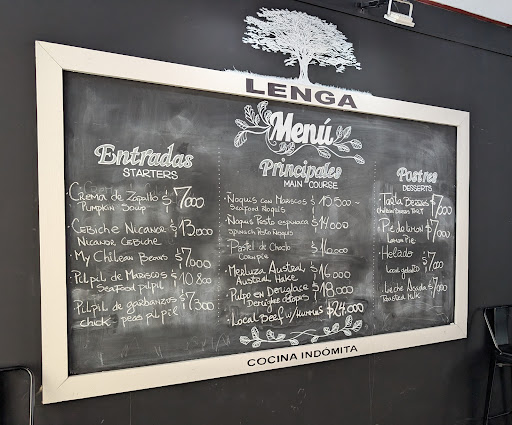 LENGA
Menú
Entradas
STARTERS
Crema de Zapallo $7.000
Pumpkin Soup
Cebiche Nicanor $13.000
Nicanor Cebiche
My Chilean Beans $7.000
Pulpil de Mariscos $10.800
Seafood pulpil
Pulpil de garbanzos $7.300
chick peas pulpil
Principales
MAIN COURSE
Ñoquis con Mariscos $10.500
Seafood Ñoquis
Ñoquis Pesto espinaca $14.000
Spinach Pesto Noquis
Pastel de Choclo $16.000
Corn pie
Merluza Austral $16.000
Austral Hake
Pulpo en $18.000
Local Beef w/ Hummus $24.000
Postres
DESSERTS
Tarta Berries $7.000
Chilean Berries
Pie de limón $7.000
Lemon Pie
Helado $7.000
Local gelato
Leche Asada $7.000
Roasted Milk
COCINA INDÓMITA